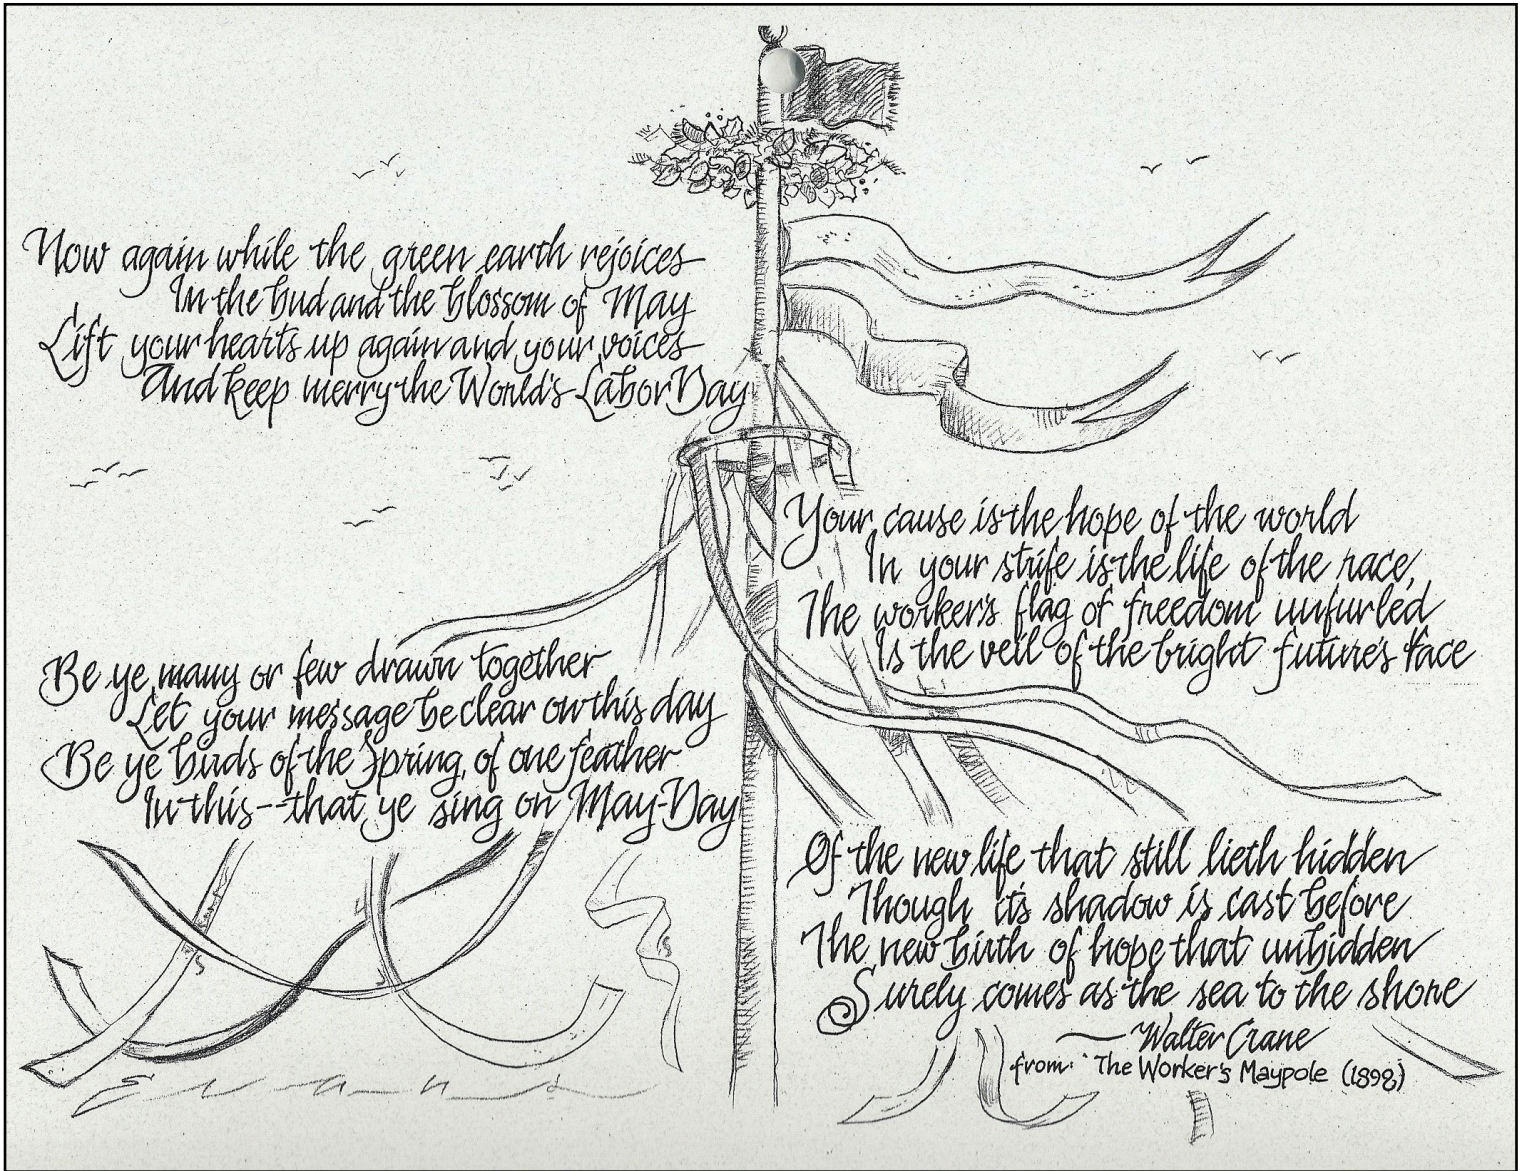 Now again while the green earth rejoices
In the bud and the blossom of May
Lift your hearts up again and your voices
And keep merry the World's Labor Day
Your cause is the hope of the world
In your strife is the life of the race,
The worker's flag of freedom unfurled
Is the veil of the bright future's face
Be ye many or few drawn together
Let your message be clear on this day
Be ye birds of the Spring, of one feather
In this--that ye sing on May-Day
Of the new life that still lieth hidden
Though it's shadow is cast before
The new birth of hope that unbidden
Surely comes as the sea to the shore
— Walter Crane
from: The Worker's Maypole (1898)
Evans